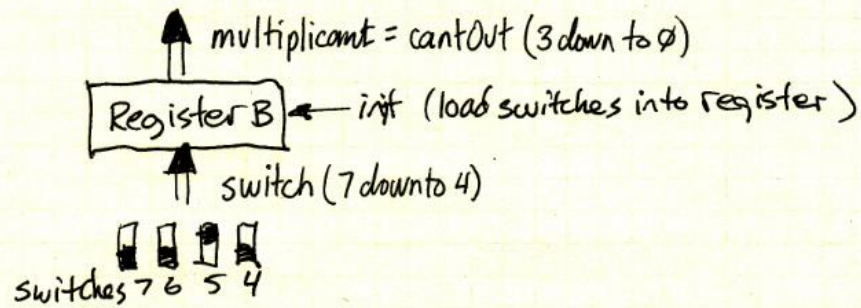 multiplicant = cantOut (3 down to 0)
Register B
init (load switches into register)
switch (7 downto 4)
switches 7 6 5 4